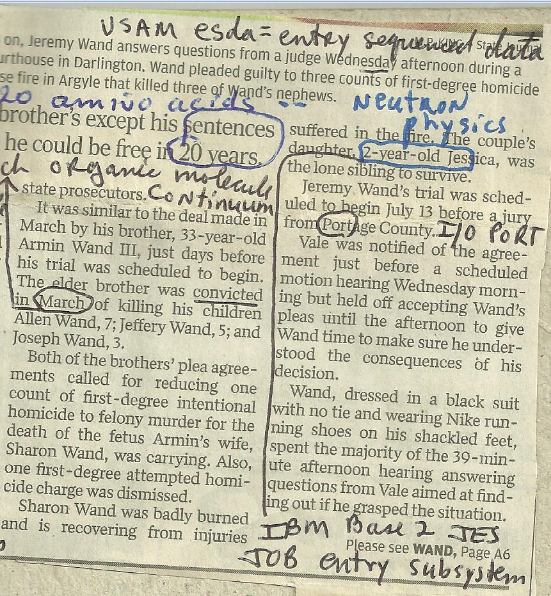 USAM esda = entry sequenced data
on, Jeremy Wand answers questions from a judge Wednesday afternoon during a
urthouse in Darlington. Wand pleaded guilty to three counts of first-degree homicide
se fire in Argyle that killed three of Wand's nephews.
20 amino acids --
NEUTRON
physics
brother's except his sentences
he could be free in 20 years.
ch organic molecule
continuum
state prosecutors.
It was similar to the deal made in
March by his brother, 33-year-old
Armin Wand III, just days before
his trial was scheduled to begin.
The elder brother was convicted
in March of killing his children
Allen Wand, 7; Jeffery Wand, 5; and
Joseph Wand, 3.
Both of the brothers' plea agree-
ments called for reducing one
count of first-degree intentional
homicide to felony murder for the
death of the fetus Armin's wife,
Sharon Wand, was carrying. Also,
one first-degree attempted homi-
cide charge was dismissed.
Sharon Wand was badly burned
and is recovering from injuries
suffered in the fire. The couple's
daughter, 2-year-old Jessica, was
the lone sibling to survive.
Jeremy Wand's trial was sched-
uled to begin July 13 before a jury
from Portage County. I/O PORT
Vale was notified of the agree-
ment just before a scheduled
motion hearing Wednesday morn-
ing but held off accepting Wand's
pleas until the afternoon to give
Wand time to make sure he under-
stood the consequences of his
decision.
Wand, dressed in a black suit
with no tie and wearing Nike run-
ning shoes on his shackled feet,
spent the majority of the 39-min-
ute afternoon hearing answering
questions from Vale aimed at find-
ing out if he grasped the situation.
IBM Base 2 JES
Please see WAND, Page A6
JOB entry subsystem